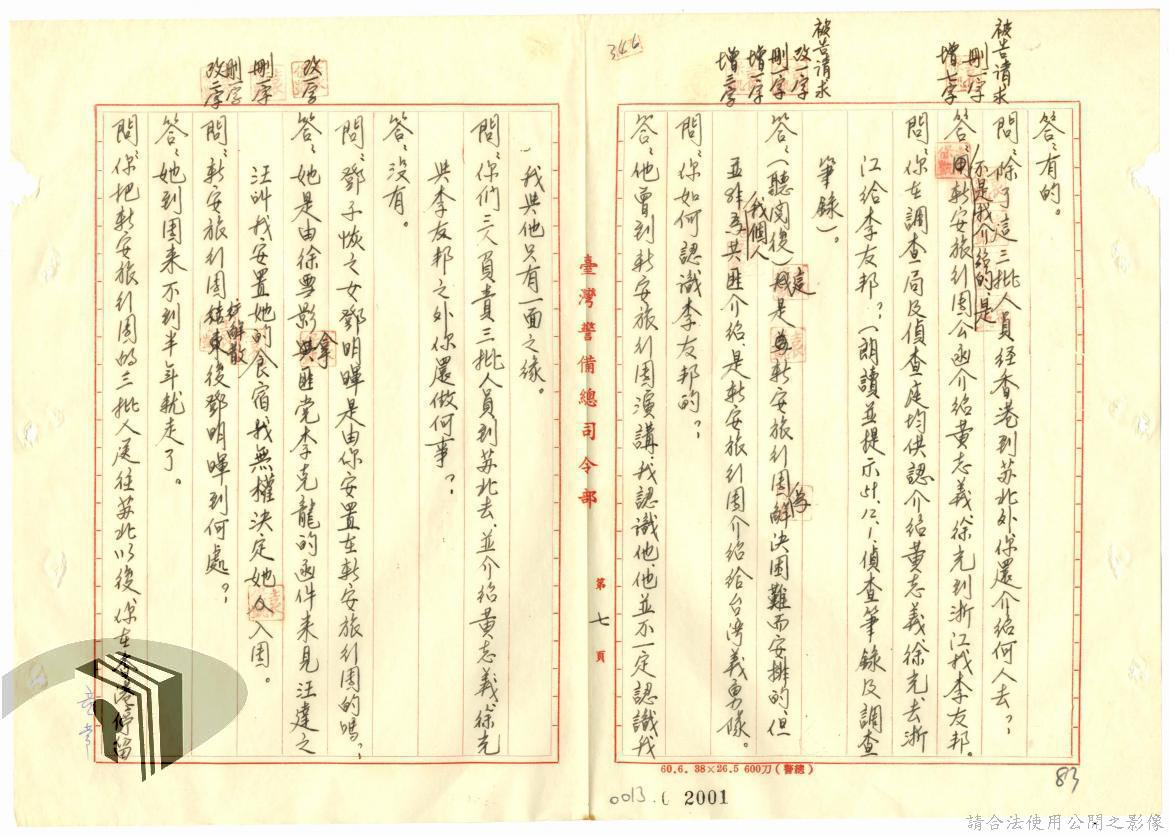 答：有的。
問：除了這三批人員經香港到苏北外你還介紹何人去？
不是我介紹的是
答：用新安旅行團公函介紹黄志義徐光到浙江找李友邦。
問：你在調查局及偵查庭均供認介紹黄志義、徐光去浙
江給李友邦？（朗讀並提示51.12.1.偵查筆錄及調查
筆錄）。
答：（聽閱後）這是為新安旅行團解決困難而安排的，但
我個人
並非為共匪介紹，是新安旅行團介紹給台湾義勇隊。
問：你如何認識李友邦的？
答：他曾到新安旅行團演講，我認識他他並不一定認識我
被告請求
刪一字
增七字
被告請求
改一字
刪一字
增一字
增三字
346
臺灣警備總司令部
第七頁
我與他只有一面之缘。
問：你們三人負責三批人員到苏北去，並介紹黄志義徐光
與李友邦之外你還做何事？
答：没有。
問：鄧子恢之女鄧明暉是由你安置在新安旅行團的嗎？
答：她是由徐無影拿匪党李克龍的函件来見汪達之
汪叫我安置她的食宿，我無權決定她入團。
問：新安旅行團於解散後鄧明暉到何處？
答：她到團来不到半年就走了。
問：你把新安旅行團的三批人送往苏北以後你在香港停留
改一字
刪一字
刪一字
改二字
60.6. 38×26.5 600刀（警總）
83
0013
2001
請合法使用公開之影像